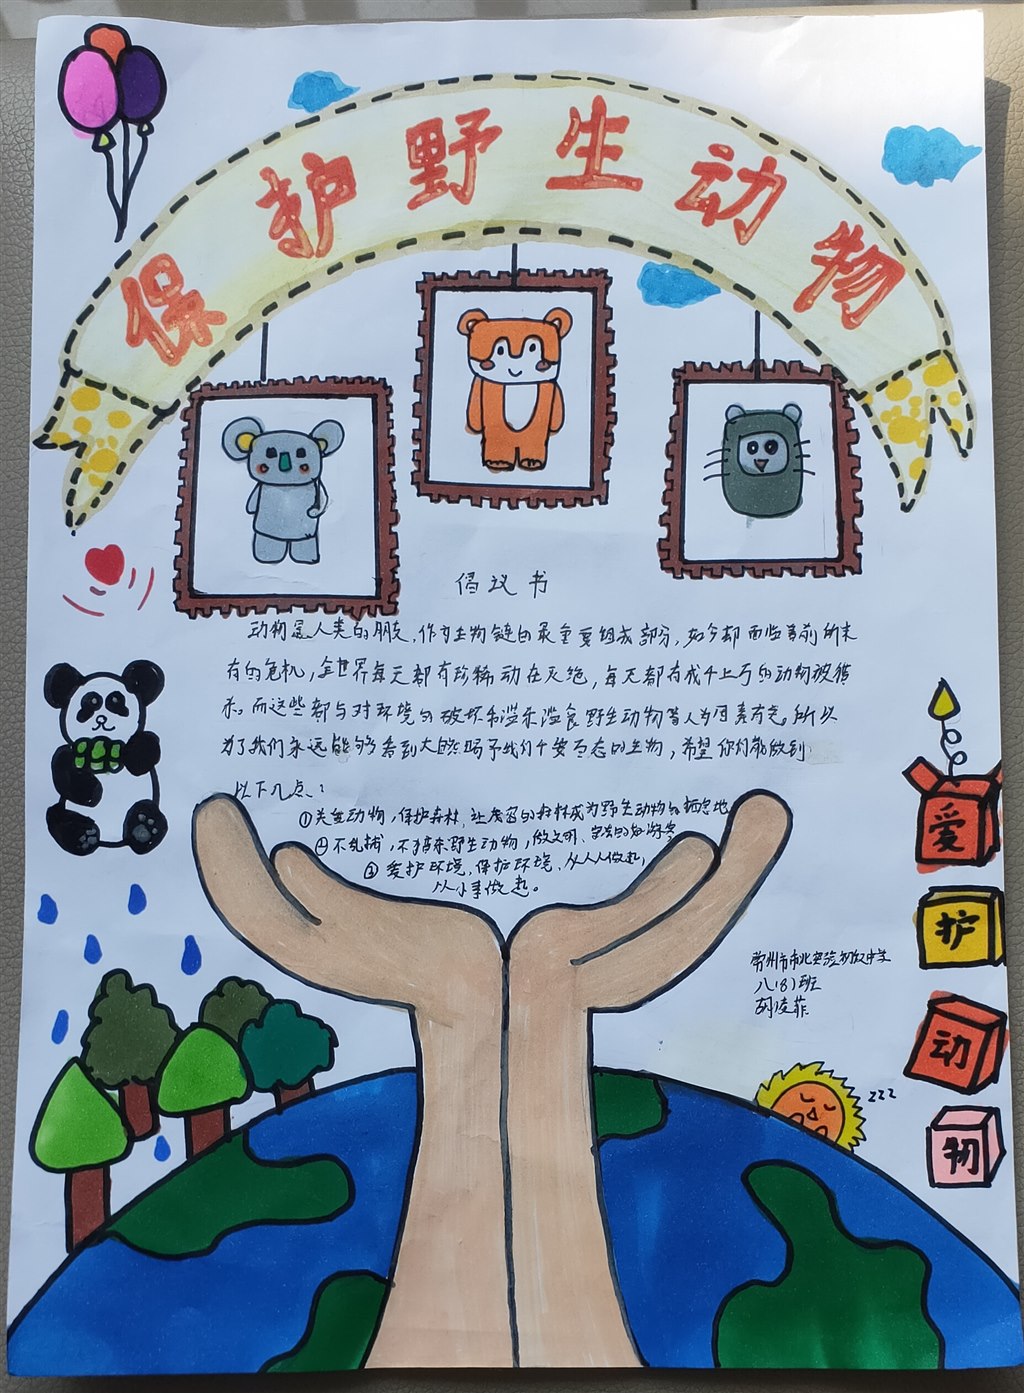 保护野生动物
倡议书
动物是人类的朋友，作为生物链的最重要组成部分，如今却面临着前所未
有的危机，全世界每天都有珍稀动在灭绝，每天都有成千上万的动物被猎
杀。而这些都与对环境的破坏和滥杀滥食野生动物等人为因素有关。所以
为了我们永远能够看到大自然赐予我们千姿百态的生物，希望你们能做到
以下几点：
①关爱动物，保护森林，让茂密的森林成为野生动物的栖息地
②不乱捕，不猎杀野生动物，做文明、
③爱护环境，保护环境、从人人做起，
从小事做起。
常州市市北实验初级中学
八(8)班
胡凌菲
爱
护
动
物
zzz